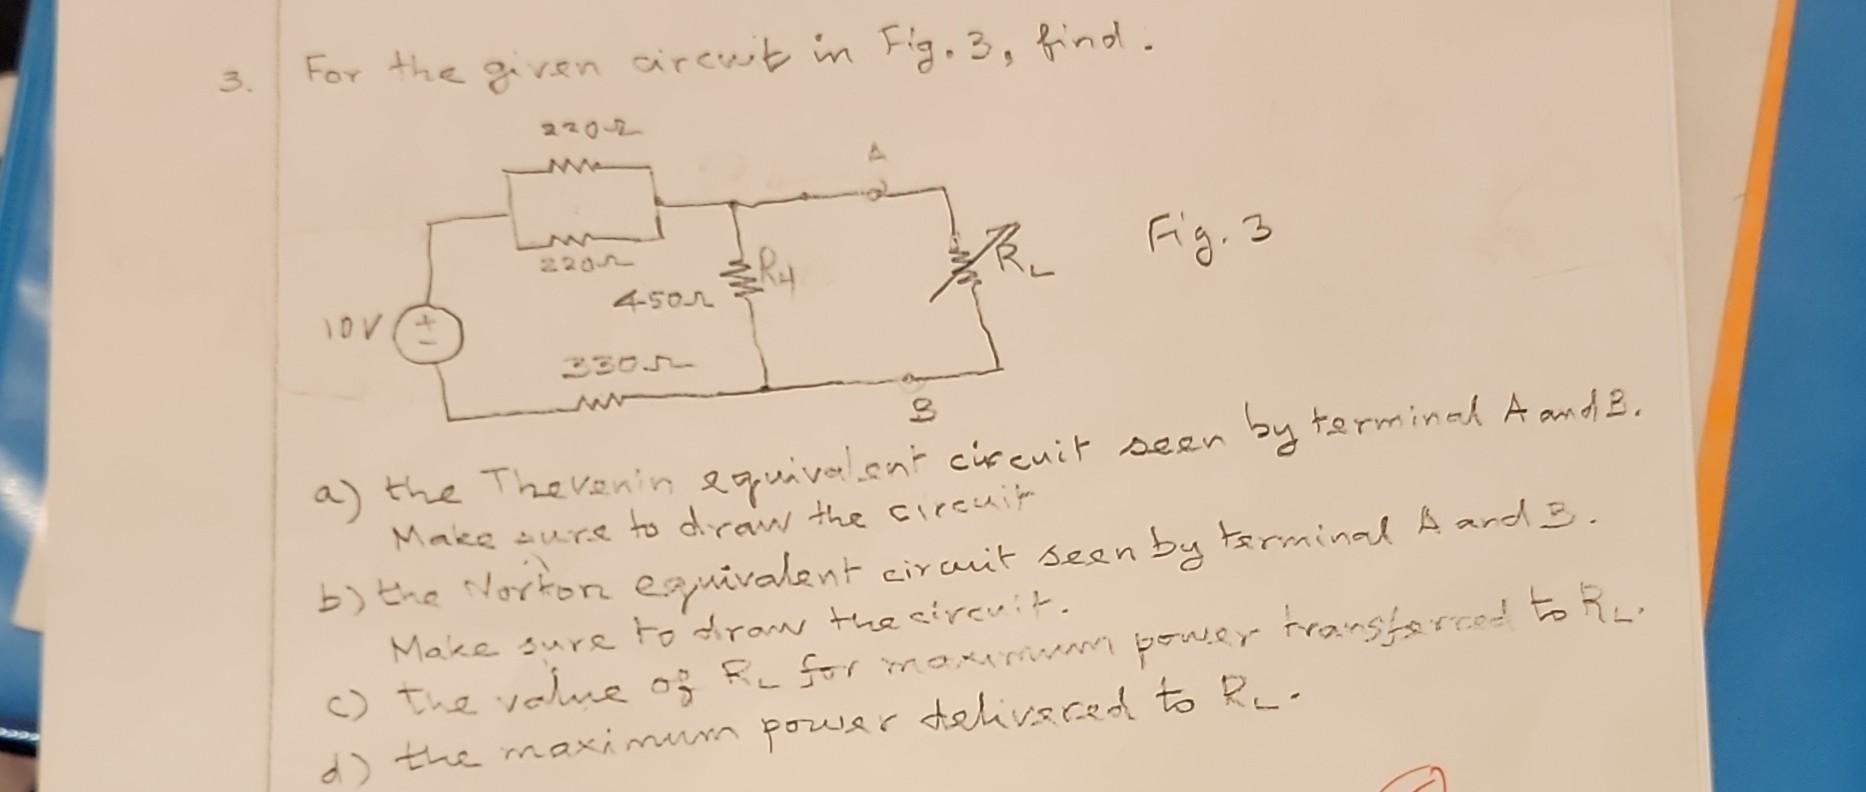 3. For the given circuit in Fig. 3, find.
220Ω
A
220Ω
R4
RL
Fig. 3
450Ω
10V
+
-
330Ω
B
a) the Thevenin equivalent circuit seen by terminal A and B.
Make sure to draw the circuit
b) the Norton equivalent circuit seen by terminal A and B.
Make sure to draw the circuit.
c) the value of RL for maximum power transferred to RL.
d) the maximum power delivered to RL.